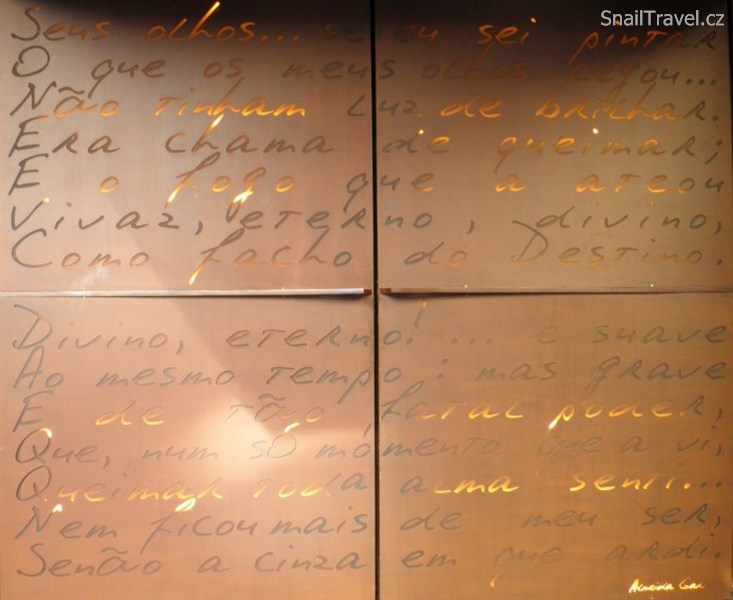 SnailTravel.cz
Seus olhos... se eu sei pintar
O que os meus olhos cegou...
Não tinham luz de brilhar.
Era chama de queimar;
E o fogo que a ateou
Vivaz, eterno, divino,
Como facho do Destino.
Divino, eterno! ... e suave
Ao mesmo tempo: mas grave
E de tão fatal poder,
Que, num só momento que a vi,
Queimar toda alma senti...
Nem ficou mais de meu ser,
Senão a cinza em que ardi.
Almeida